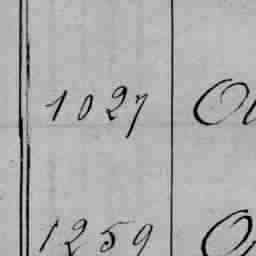 1027
1259